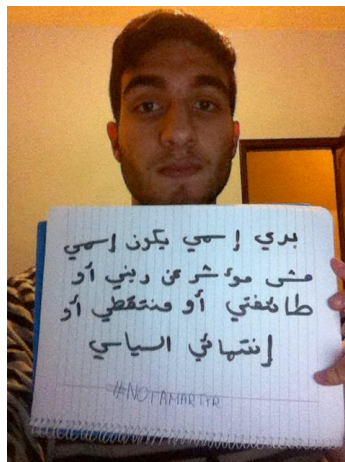 بدي إسمي يكون إسمي
مش مؤشر عن ديني أو
طائفتي أو منتقطي أو
إنتهائي السياسي
#NOTAMARTYR